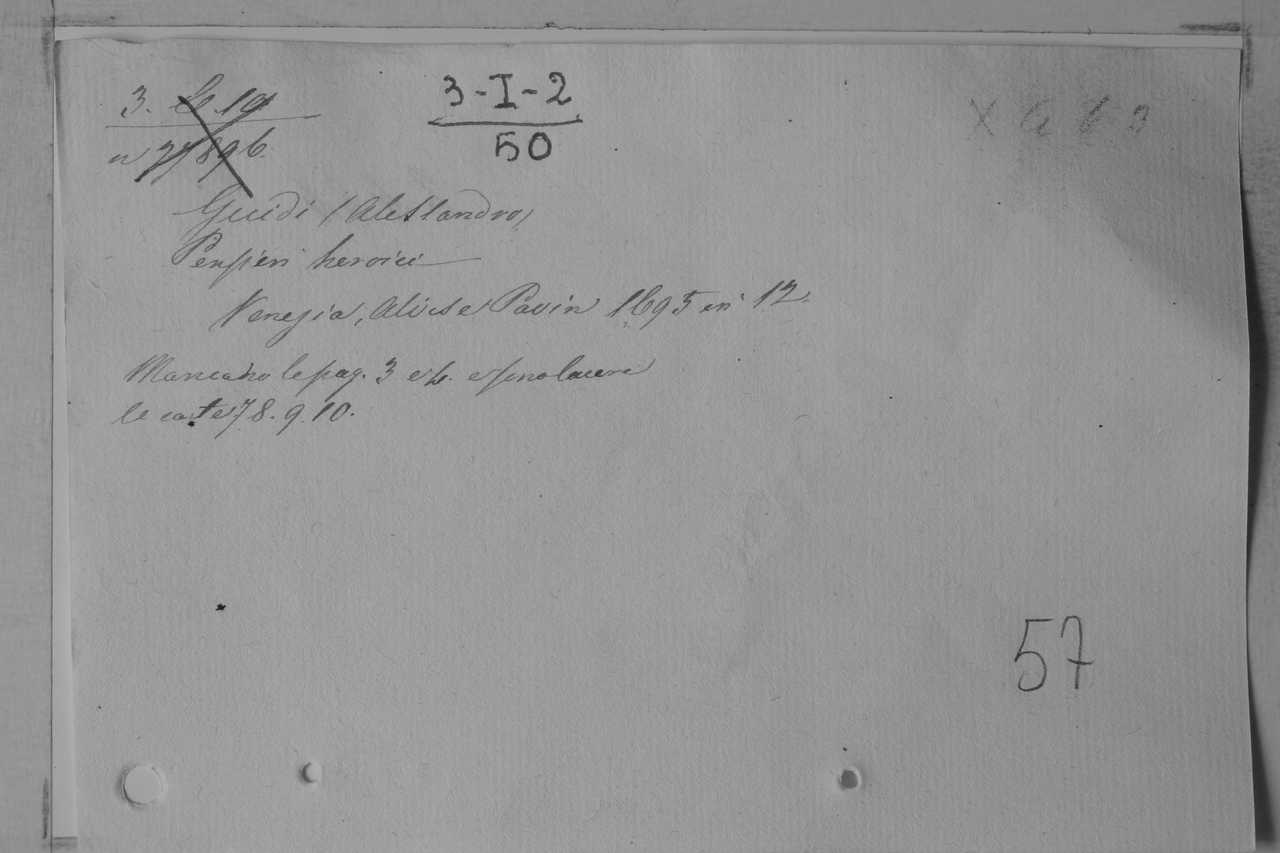 3. 19
3-I-2
50
Guidi (Alessandro)
Pensieri heroici
Venezia, Alvise Pavin 1695 in 12.
Mancano le pag. 3 e 4. e sono lacere
le carte 7 8. 9. 10.
57